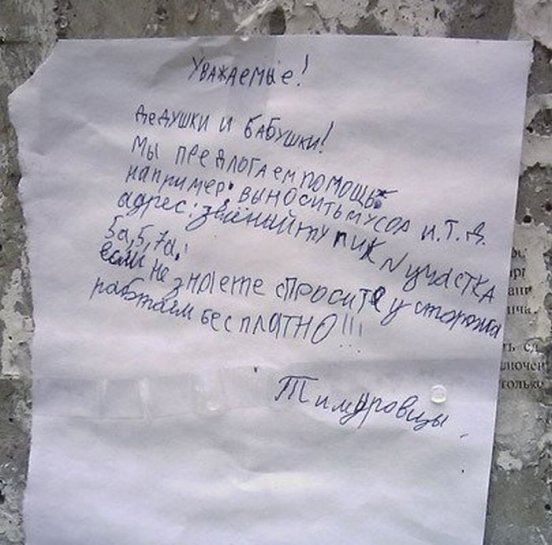 Уважаемые!
Дедушки и бабушки!
Мы предлогаем помощь
например: выносить мусор и.т.д.
адрес: зелёный тупик N участка
5а, 5, 7а,
если не знаете спросите у сторожа
работаем бесплатно!!!
Тимуровцы.